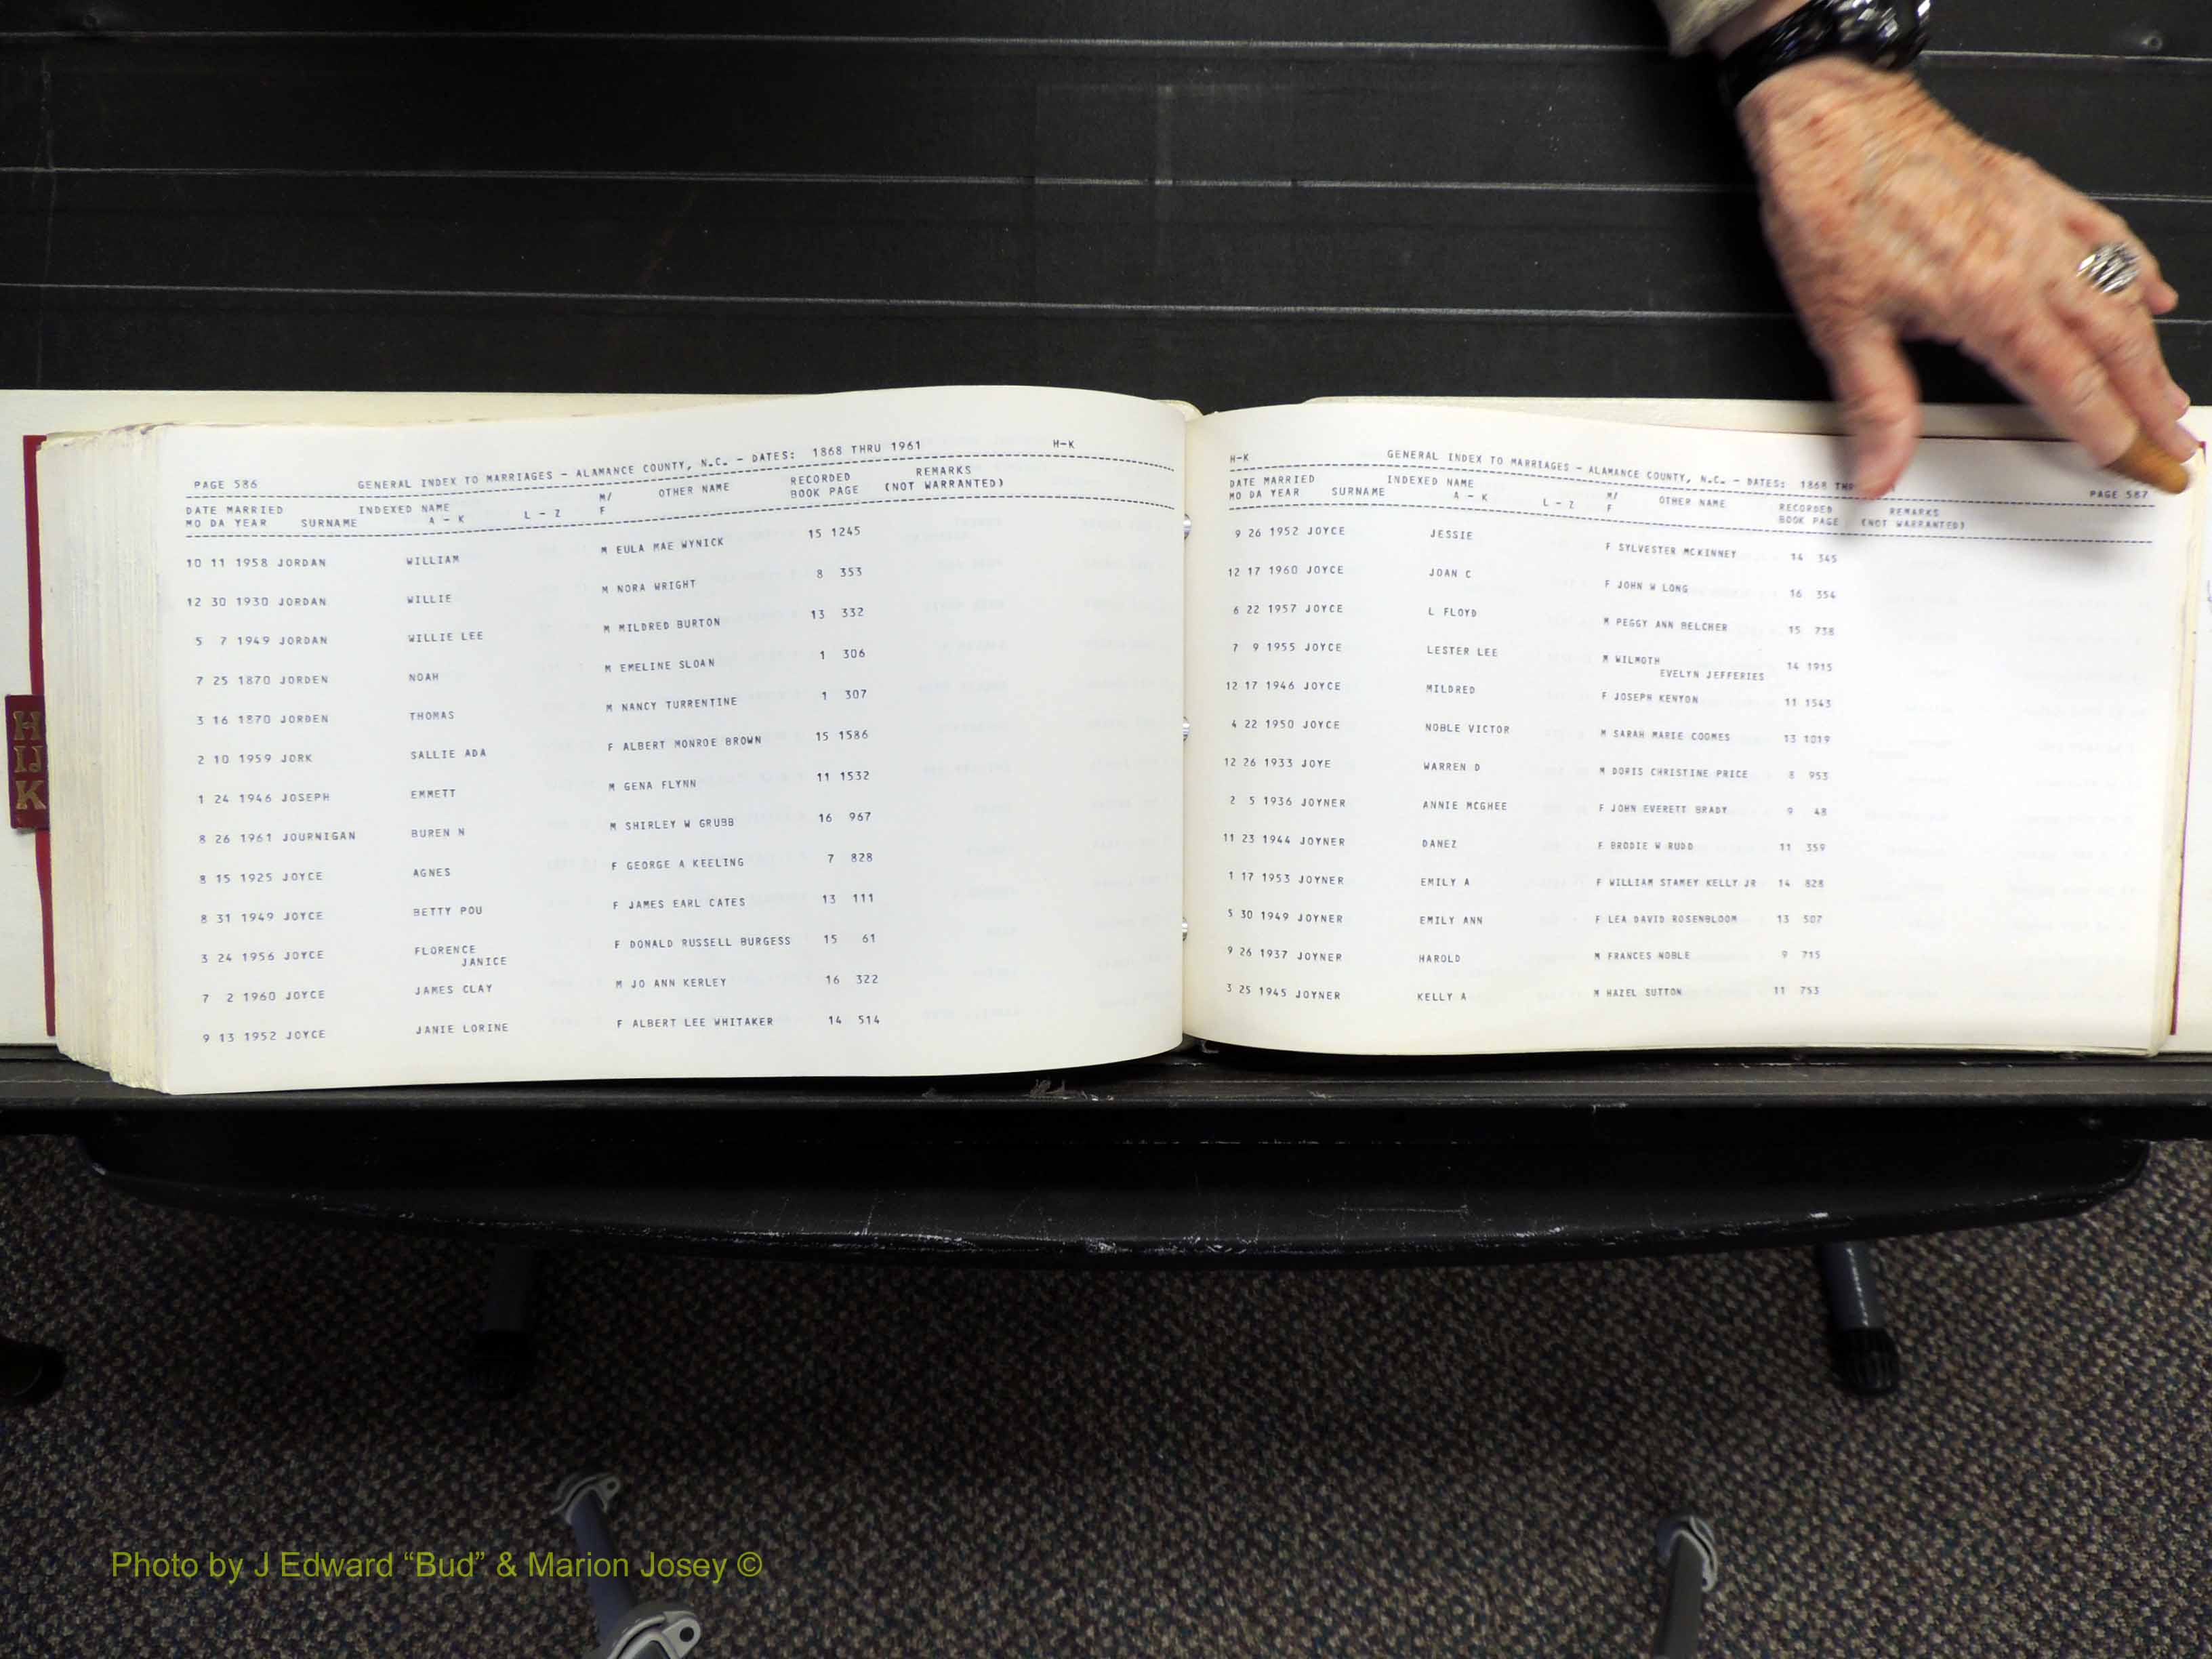 H
IJ
K
PAGE 586 GENERAL INDEX TO MARRIAGES - ALAMANCE COUNTY, N.C. - DATES: 1868 THRU 1961 H-K
DATE MARRIED INDEXED NAME M/ OTHER NAME RECORDED REMARKS
MO DA YEAR SURNAME A - K L - Z F BOOK PAGE (NOT WARRANTED)
10 11 1958 JORDAN WILLIAM M EULA MAE WYNICK 15 1245
12 30 1930 JORDAN WILLIE M NORA WRIGHT 8 353
5 7 1949 JORDAN WILLIE LEE M MILDRED BURTON 13 332
7 25 1870 JORDEN NOAH M EMELINE SLOAN 1 306
3 16 1870 JORDEN THOMAS M NANCY TURRENTINE 1 307
2 10 1959 JORK SALLIE ADA F ALBERT MONROE BROWN 15 1586
1 24 1946 JOSEPH EMMETT M GENA FLYNN 11 1532
8 26 1961 JOURNIGAN BUREN N M SHIRLEY W GRUBB 16 967
8 15 1925 JOYCE AGNES F GEORGE A KEELING 7 828
8 31 1949 JOYCE BETTY POU F JAMES EARL CATES 13 111
3 24 1956 JOYCE FLORENCE F DONALD RUSSELL BURGESS 15 61
JANICE
7 2 1960 JOYCE JAMES CLAY M JO ANN KERLEY 16 322
9 13 1952 JOYCE JANIE LORINE F ALBERT LEE WHITAKER 14 514
H-K GENERAL INDEX TO MARRIAGES - ALAMANCE COUNTY, N.C. - DATES: 1868 THR PAGE 587
DATE MARRIED INDEXED NAME M/ OTHER NAME RECORDED REMARKS
MO DA YEAR SURNAME A - K L - Z F BOOK PAGE (NOT WARRANTED)
9 26 1952 JOYCE JESSIE F SYLVESTER MCKINNEY 14 545
12 17 1960 JOYCE JOAN C F JOHN W LONG 16 354
6 22 1957 JOYCE L FLOYD M PEGGY ANN BELCHER 15 738
7 9 1955 JOYCE LESTER LEE M WILMOTH 14 1915
EVELYN JEFFERIES
12 17 1946 JOYCE MILDRED F JOSEPH KENYON 11 1543
4 22 1950 JOYCE NOBLE VICTOR M SARAH MARIE COOMES 13 1019
12 26 1933 JOYE WARREN D M DORIS CHRISTINE PRICE 8 953
2 5 1936 JOYNER ANNIE MCGHEE F JOHN EVERETT BRADY 9 48
11 23 1944 JOYNER DANEZ F BRODIE W RUDD 11 359
1 17 1953 JOYNER EMILY A F WILLIAM STAMEY KELLY JR 14 828
5 30 1949 JOYNER EMILY ANN F LEA DAVID ROSENBLOOM 13 507
9 26 1937 JOYNER HAROLD M FRANCES NOBLE 9 715
3 25 1945 JOYNER KELLY A M HAZEL SUTTON 11 753
Photo by J Edward “Bud” & Marion Josey ©